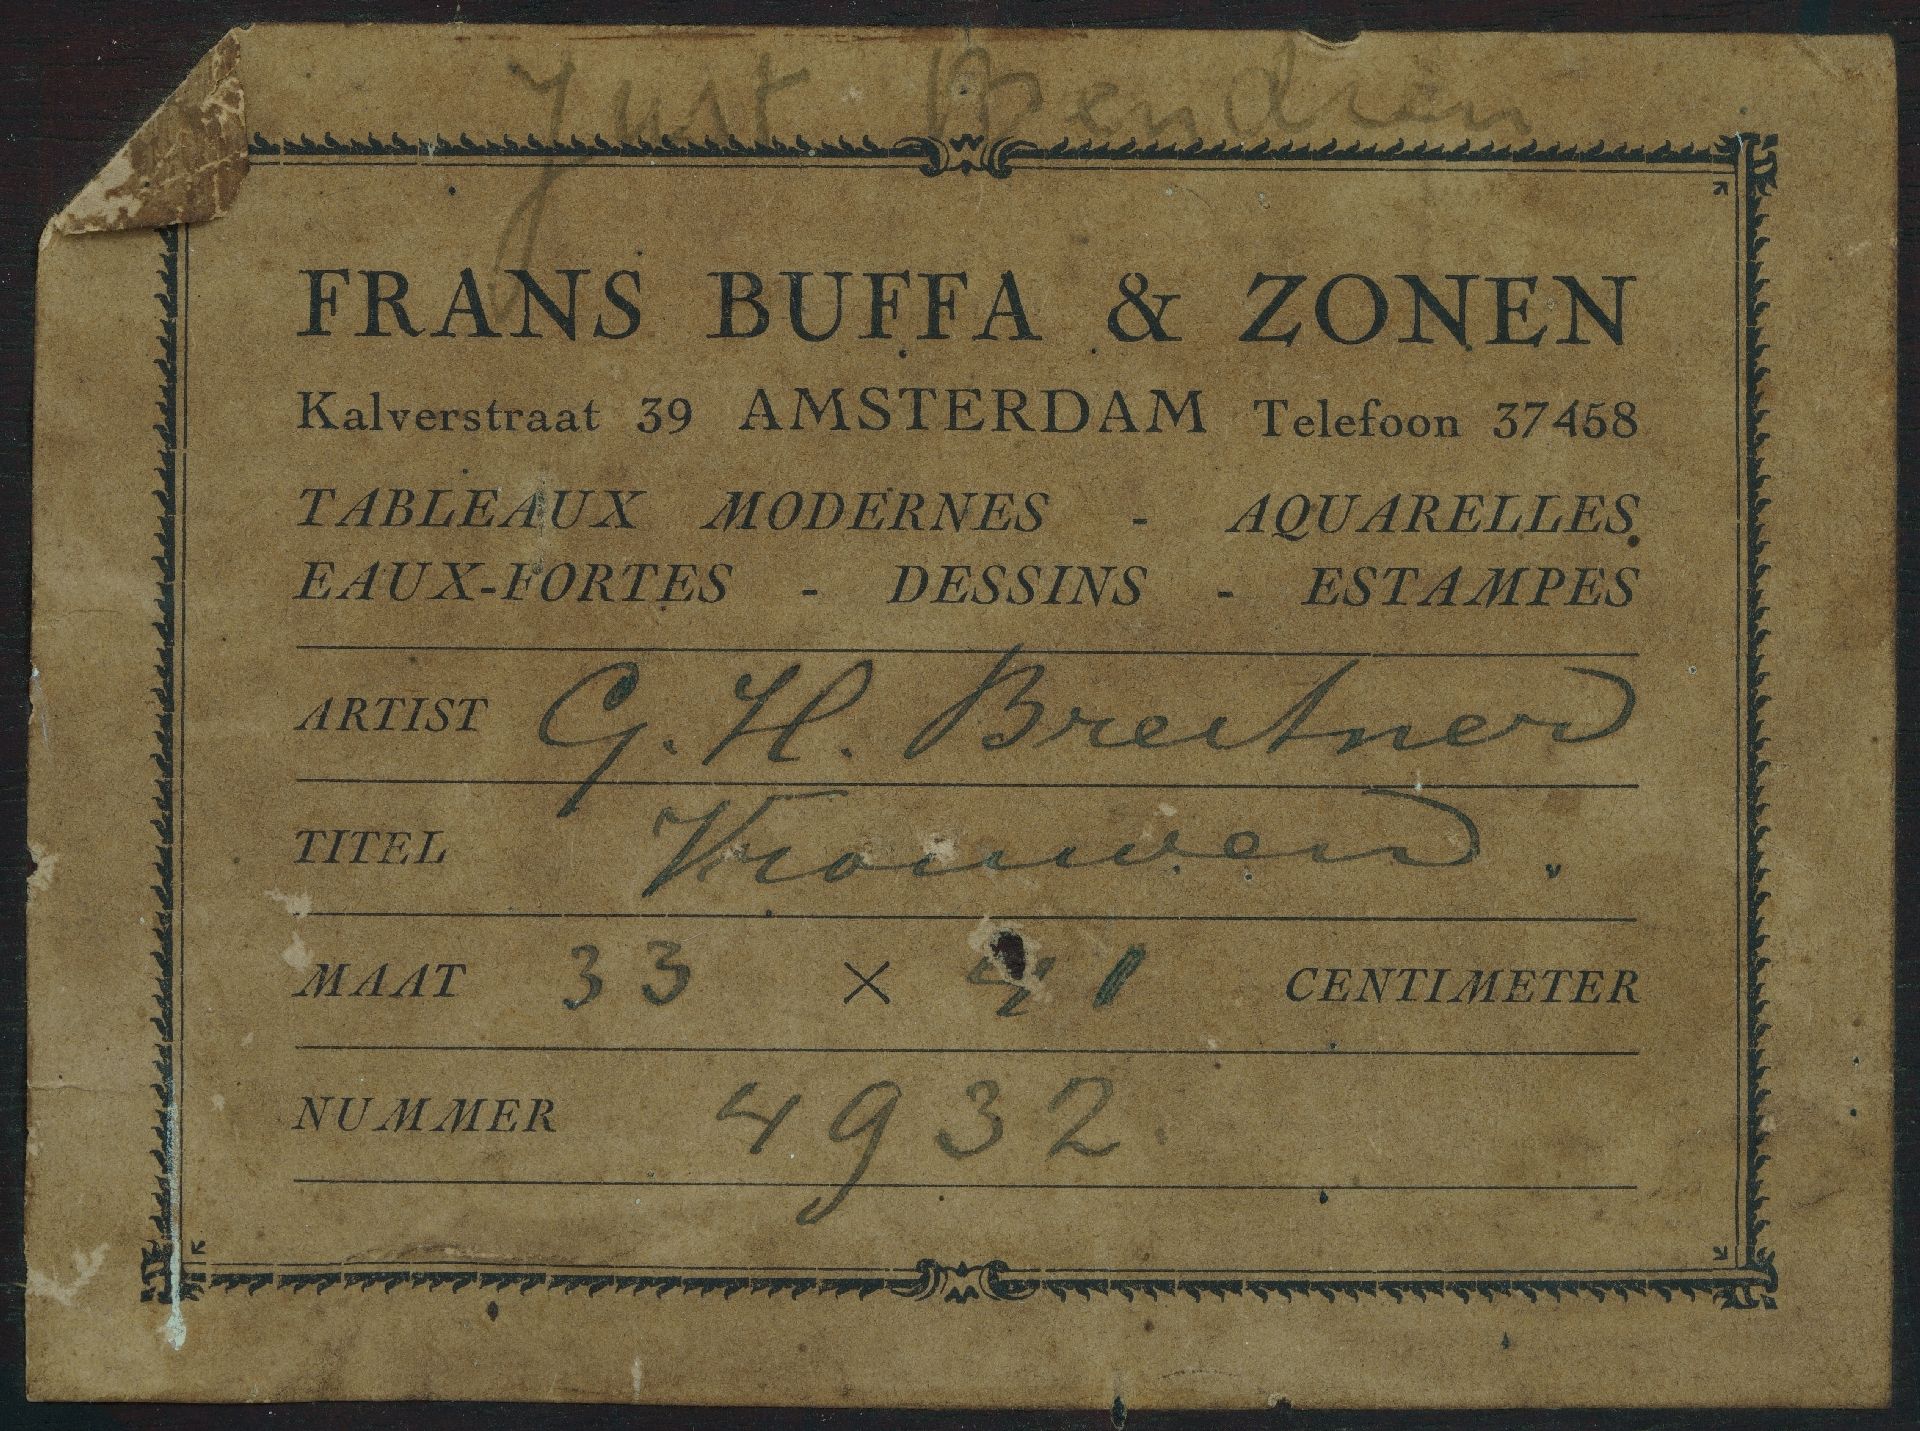 Just Bendien
FRANS BUFFA & ZONEN
Kalverstraat 39 AMSTERDAM Telefoon 37458
TABLEAUX MODERNES - AQUARELLES
EAUX-FORTES - DESSINS - ESTAMPES
ARTIST G. H. Breitner
TITEL Vrouwen.
MAAT 33 × 41 CENTIMETER
NUMMER 4932.